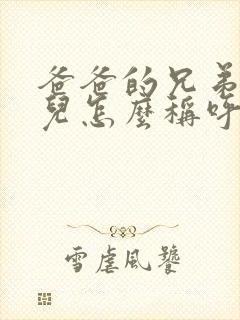 爸爸的兄弟
兒怎麼稱呼
雪虐風饕